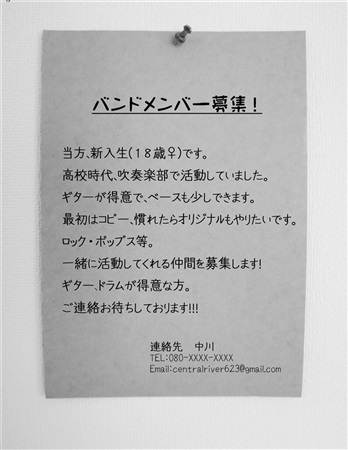 バンドメンバー募集!
当方、新入生(18歳♀)です。
高校時代、吹奏楽部で活動していました。
ギターが得意で、ベースも少しできます。
最初はコピー、慣れたらオリジナルもやりたいです。
ロック・ポップス等。
一緒に活動してくれる仲間を募集します!
ギター、ドラムが得意な方。
ご連絡お待ちしております!!!
連絡先 中川
TEL:080-XXXX-XXXX
Email:centralriver623@gmail.com